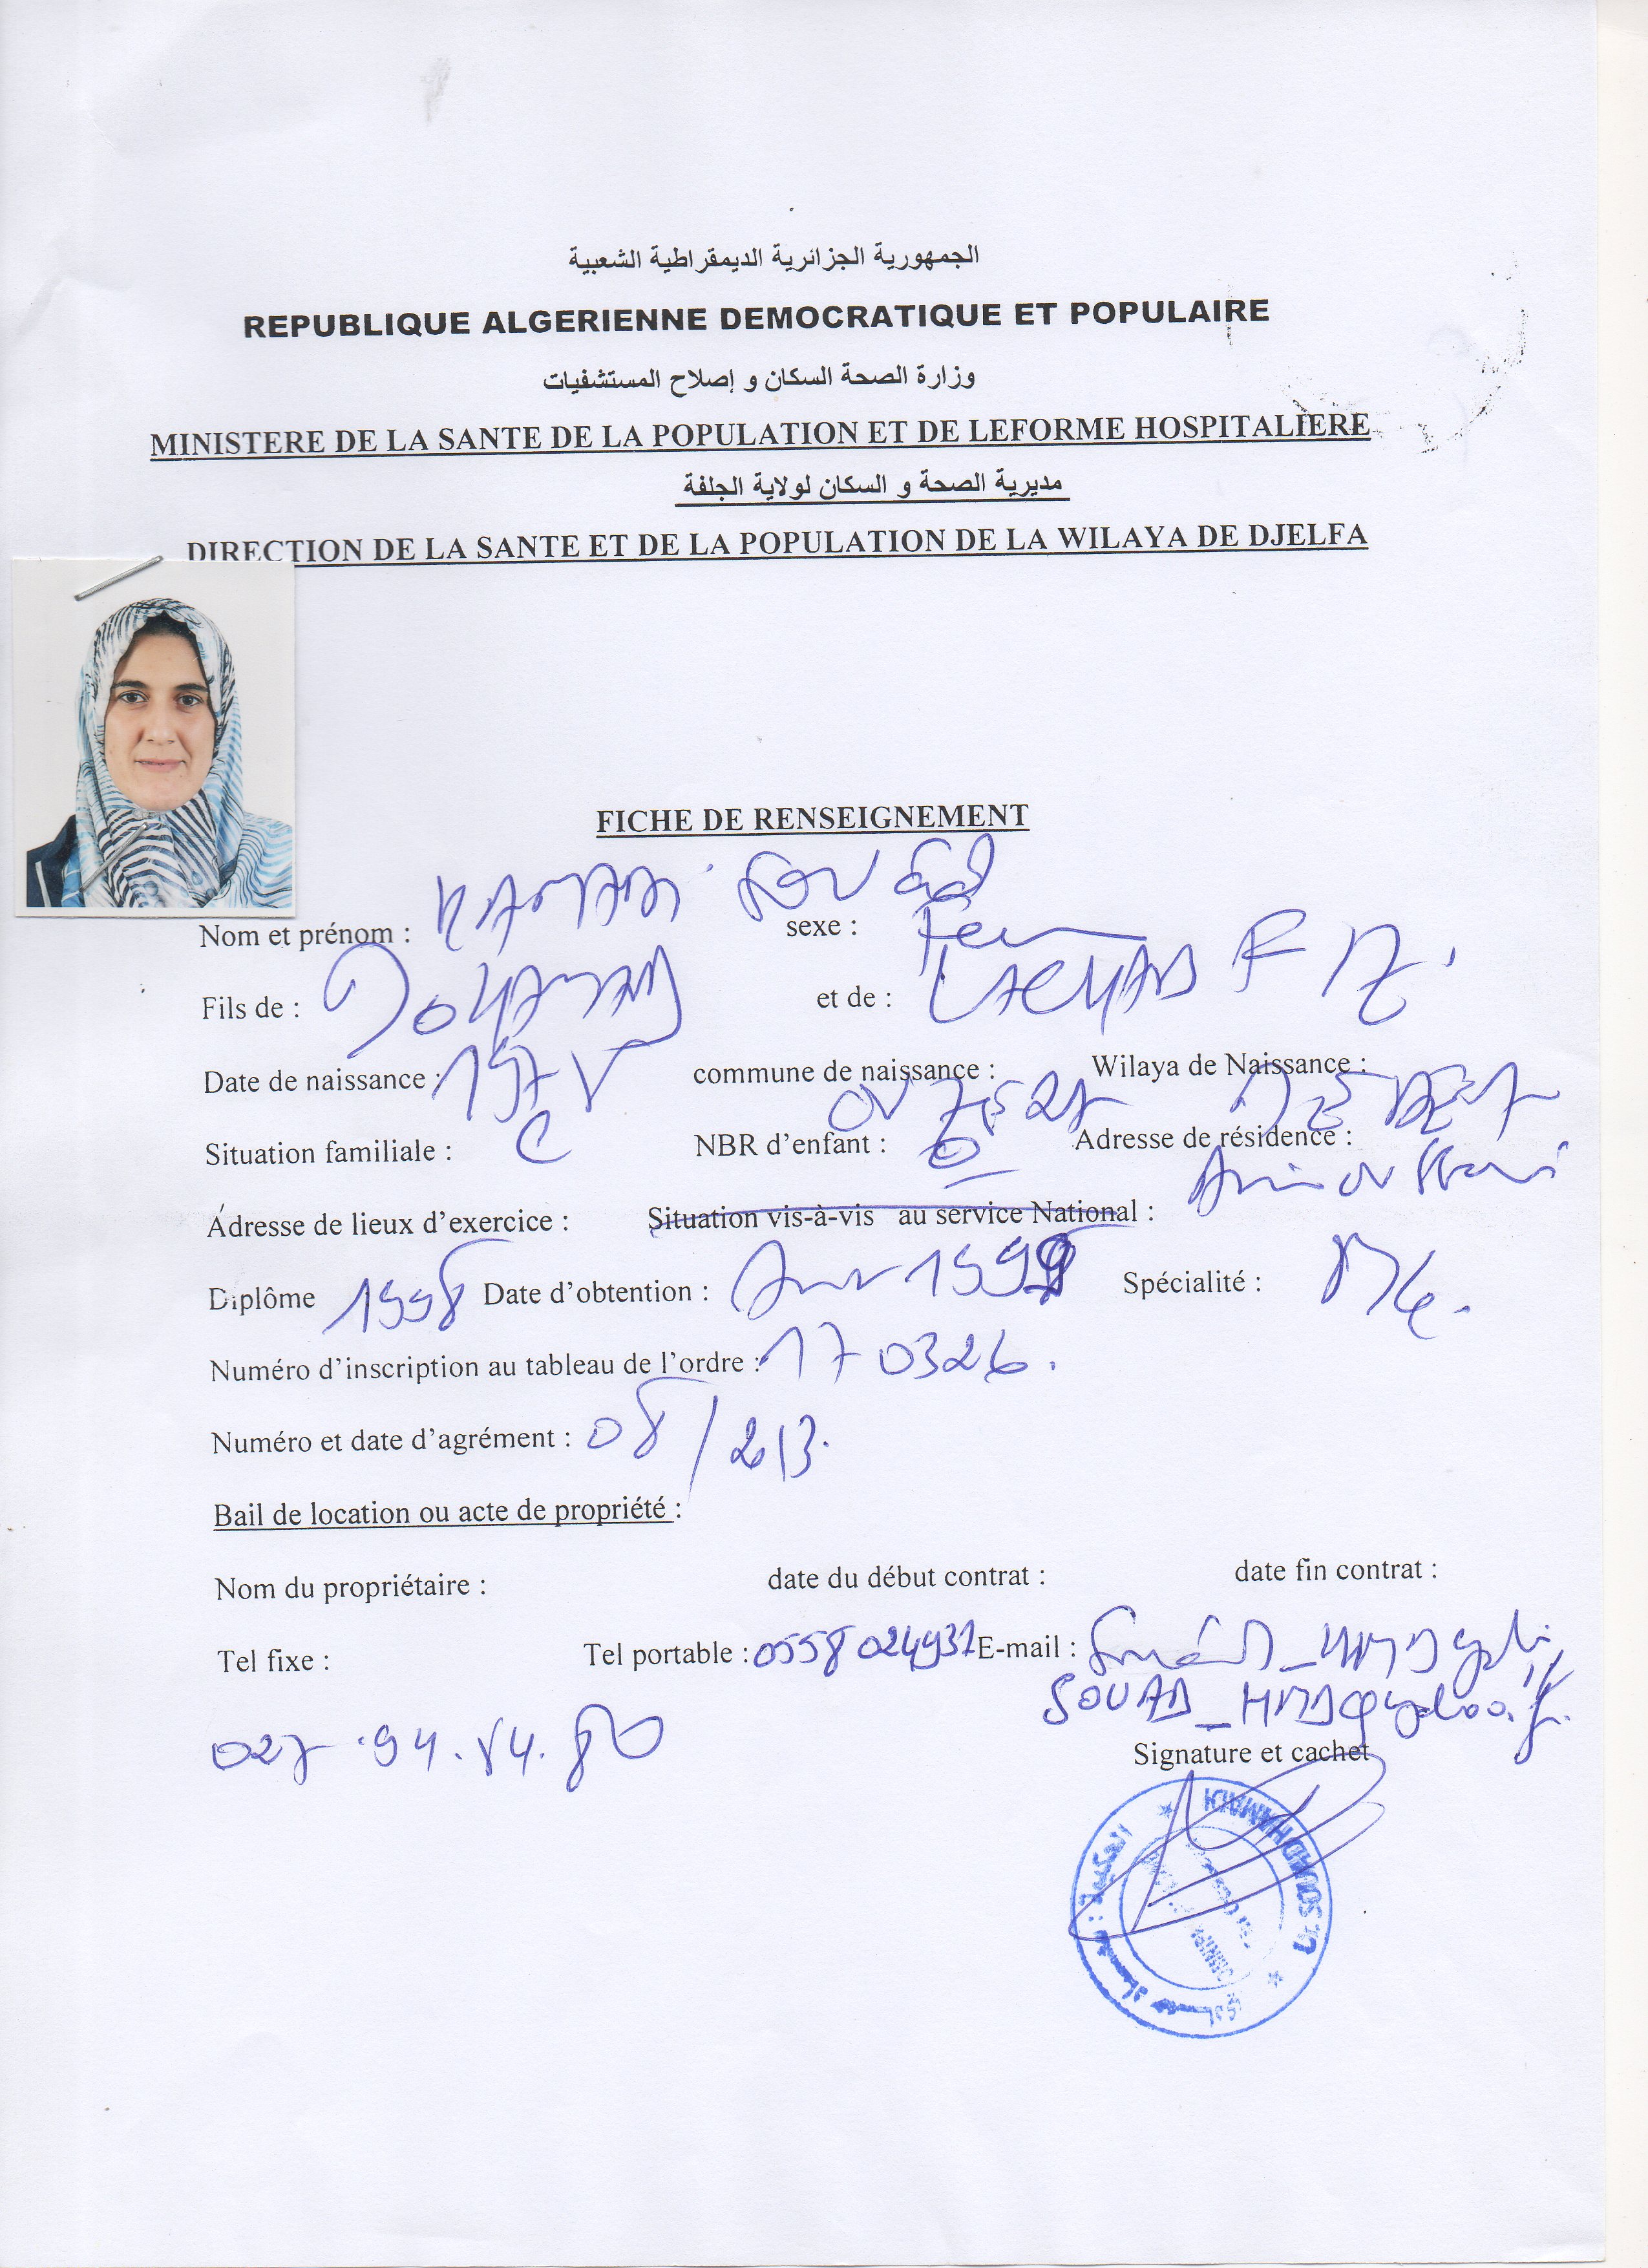 الجمهورية الجزائرية الديمقراطية الشعبية
REPUBLIQUE ALGERIENNE DEMOCRATIQUE ET POPULAIRE
وزارة الصحة السكان و إصلاح المستشفيات
MINISTERE DE LA SANTE DE LA POPULATION ET DE LEFORME HOSPITALIERE
مديرية الصحة و السكان لولاية الجلفة
DIRECTION DE LA SANTE ET DE LA POPULATION DE LA WILAYA DE DJELFA
FICHE DE RENSEIGNEMENT
Nom et prénom : HAMAIDI Souad sexe : Fem
Fils de : et de : LACHAB F
Date de naissance : commune de naissance : Wilaya de Naissance :
Situation familiale : C NBR d’enfant : 0 Adresse de résidence :
Adresse de lieux d’exercice : Situation vis-à-vis au service National :
Diplôme 1998 Date d’obtention : Spécialité :
Numéro d’inscription au tableau de l’ordre : 170326.
Numéro et date d’agrément : 08/213.
Bail de location ou acte de propriété :
Nom du propriétaire : date du début contrat : date fin contrat :
Tel fixe : Tel portable : 0558024931 E-mail :
SOUAD_HMD@yahoo.fr
027.94.84.80
Signature et cachet